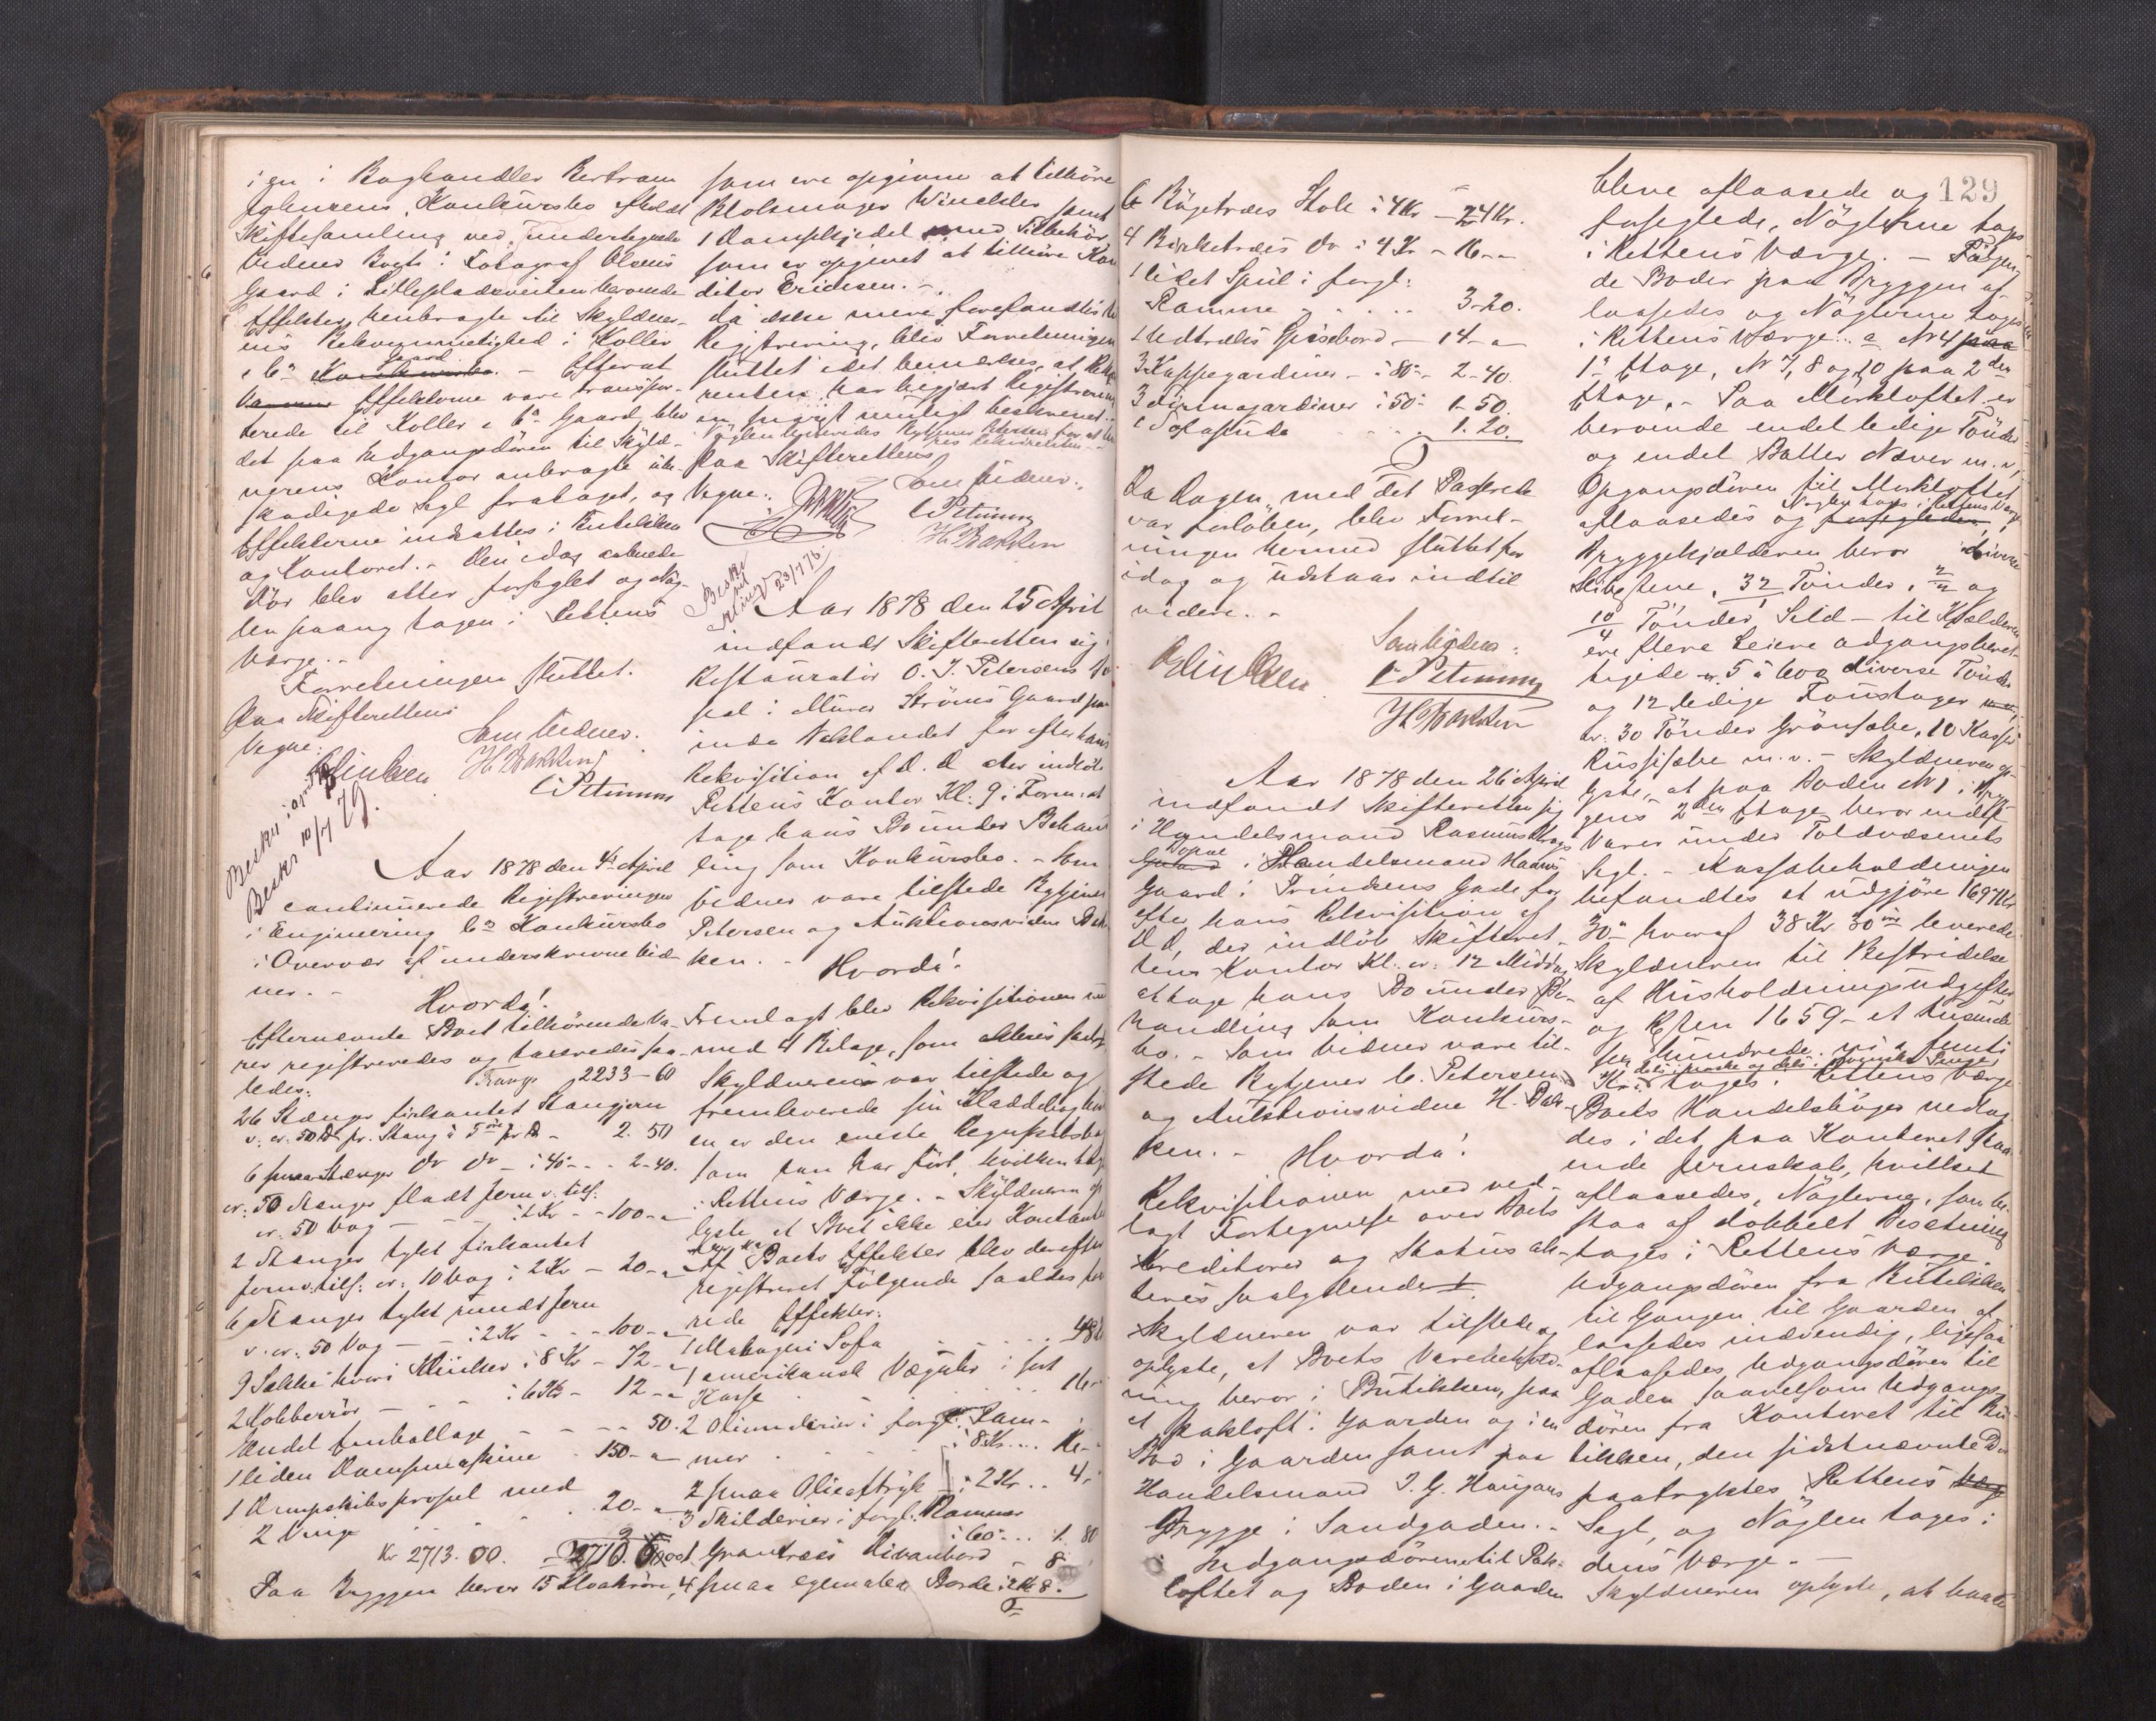 i en i Boghandler Bertram
Johnsens Konkursbo afholdt
Skiftesamling ved undertegnede
Vidner Bragt i Fotograf Olsens
Gaard i Lillepladsveiten beroende
Effekter, henbragte til Skyldner-
ens Bekvemmelighed i Koller
& Co gaard. - Efterat
Effekterne vare transpor-
terede til Koller & Co Gaard, blev
det paa Udgangsdören til Skyld-
nerens Kontor anbragte ube-
skadigede Segl frataget, og
Effekterne indsattes i Butikken
og Kontoret. - Den idag aabnede
Dör blev atter forseglet og Nög-
len paany tagen i Rettens
Værge. -
Forretningen sluttet.
Paa Skifterettens
Vegne:
Som Vidner.
H. Bakken
C Petersen
Beskr 10/7 79.
Aar 1878 den 4de April
continuerede Registreringen
i Engineering Co Konkursbo
i Overvær af underskrevne Vid-
ner. -
Hvorda!
Efternævnte Boet tilhörende Va-
rer registreredes og taxeredes saa-
ledes:
Transp 2233-60
26 Stænger firkantet Stangjern
v. cr. 50 pr. Stang à 5 öre pr - 2. 50
6 smaa Stænger do do - à 40 - - 2-40.
cr. 50 Stænger fladt Jern v. tils.
cr. 50 Vog - - - à 2 Kr - - 100-"
2 Stænger tykt firkantet
Jern v. tils. cr. 10 Vog à 2 Kr - 20-"
6 Stænger tykt rundt Jern
v. cr. 50 Vog - - à 2 Kr - - - 100-"
9 Sække hvori Klinker à 8 Kr - 72-"
2 Kobberrör - - - à 6 Kr - 12-"
Endel Emballage - - - - 50.
1 liden Dampmaskine - 150-"
1 Dampskibspropel med
2 Vinge . . . . . 20-"
Kr 2713. 00.
Paa Bryggen beror 15 Kloakrör,
som ere opgivne at tilhöre
Blokmager Winckler samt
1 Dampkjedel med Tilbehör
som er opgivet at tilhöre Kon
ditor Erichsen. -
Da ikke mere forefandtes til
Registrering, blev Forretningen
sluttet idet bemærkes, at Rekvi
renten har begjært Registrering
en snarest muligt beskreven. -
paa Skifterettens
Vegne:
Som Vidner.
C Petersen
H. Bakken
Aar 1878 den 25 April
indfandt Skifteretten sig i
Restauratör O. J. Petersens Lo
kal i Murer Ströms Gaard paa
indre Baklandet for efter hans
Rekvisition af D. D. der indlöb
Rettens Kontor Kl: 9 i Form: at
tage hans Bo under Behand
ling som Konkursbo. - Som
Vidner vare tilstede Bytjener
Petersen og Auktionsvidne Bak
ken. -
Hvorda!
Fremlagt blev Rekvisitionen
med 4 Bilage, som akteres
Skyldneren var tilstede og
fremleverede sin Kladdebog hvil
en er den eneste Regnskabsbog
som han har fört, hvilken tages
i Rettens Værge. - Skyldneren op
lyste at Boet ikke eier Kontanter
Af Boets Effekter blev derefter
registreret fölgende saaledes
rede Effekter:
1 Mahogni Sofa . . . . . 48
1 amerikansk Vægur i sort
Kasse . . . . . . 16
2 Oliemalerier i forgl. Ram-
mer . . . . à 8 Kr . . . 16
2 smaa Olieaftryk à 2 Kr . . 4
3 Skilderier i forgl. Rammer
à 60 . . . 1. 80
1 Grantræes Divanbord - 8
4 smaa egemalte Borde à 2 Kr 8.
129
6 Bögetræes Stole à 4 Kr - 24 Kr.
4 Birketræes do à 4 Kr - 16 - -
1 lidet Speil i forgl:
Ramme . . . . . 3-20.
1 Udtræks Spisebord - 14-"
3 Kappegardiner - à 80 - 2-40.
3 gardiner à 50 - 1-50.
1 Sofapude - - - 1. 20.
Da Dagen med det Passerede
var forlöben, blev Forret-
ningen hermed sluttet for
idag og udstaar indtil
videre. -
Som Vidner:
C Petersen
H Bakken
Aar 1878 den 26 April
indfandt Skifteretten sig
i Handelsmand Rasmus
Lokal i Handelsmand
Gaard i Prindsens Gade for
efter hans Rekvisition af
D. D. der indlöb Skifteret-
tens Kontor Kl. cr: 12 Middag
at tage hans Bo under Be-
handling som Konkurs-
bo. - Som Vidner vare til-
stede Bytjener C. Petersen
og Auktionsvidne H. Bak-
ken. - Hvorda!
Rekvisitionen med ved-
lagt Fortegnelse over Boets
Kreditorer og Status ak-
teres saalydende
Skyldneren var tilstede og
oplyste, at Boets Varebehold-
ning beror i Butikken, paa
et Pakloft i Gaarden og i en
Bod i Gaarden samt paa
Handelsmand J. G. Haugans
Brygge i Sandgaden. -
Indgangsdörene til Pak-
loftet og Boden i Gaarden
bleve aflaasede og
forseglede, Nöglerne toges
i Rettens Værge. - Fölgen
de Boder paa Bryggen af-
laasedes og Nöglerne toges
i Rettens Værge: a No 4
1ste Etage, No 7, 8 og 10 paa 2den
Etage. - Paa Mörkloftet er
beroende endel ledige Tönder
og endel Balter Næver m. v.
Opgangsdören til Mörkloftet
aflaasedes og Nöglen toges i Rettens Værge
Bryggekjælderen beror diverse
32 Tönder,
10/4 Tönder Sild - til Kjælderen
ere flere Leiere adgangsberet-
tigede - 5 à 600 diverse Tönder
og 12 ledige Foustager
cr. 30 Tönder Grönsæbe, 10 Kasser
Russisæbe m. v. - Skyldneren op-
lyste, at paa Boden No 1 i Bryg-
gens 2den Etage beror endel
Varer under Toldvæsenets
Segl. - Kassabeholdningen
befandtes at udgjöre 1697 Kr
30 hvoraf 38 Kr 30 öre leverede
Skyldneren til Bestridelse
af Husholdningsudgifter
og Resten 1659 - et tusinde
sex hundrede ni & femti
Kr. toges i Rettens Værge
Boets Handelsböger nedlag
des i det paa Kontoret staa
ende Jernskab, hvilket
aflaasedes, Nöglerne, som be-
staa af dobbelt Besætning
toges i Rettens Værge.
Udgangsdören fra Butikken
til Gangen til Gaarden af
laasedes indvendig, ligesaa
aflaasedes Udgangsdören til
Gaden saavelsom Udgangs-
dören fra Kontoret til Bu-
tikken, den sidstnævnte Dör
paatryktes Rettens
Segl, og Nöglen toges i
dens Værge. -
Skyldneren oplyste, at